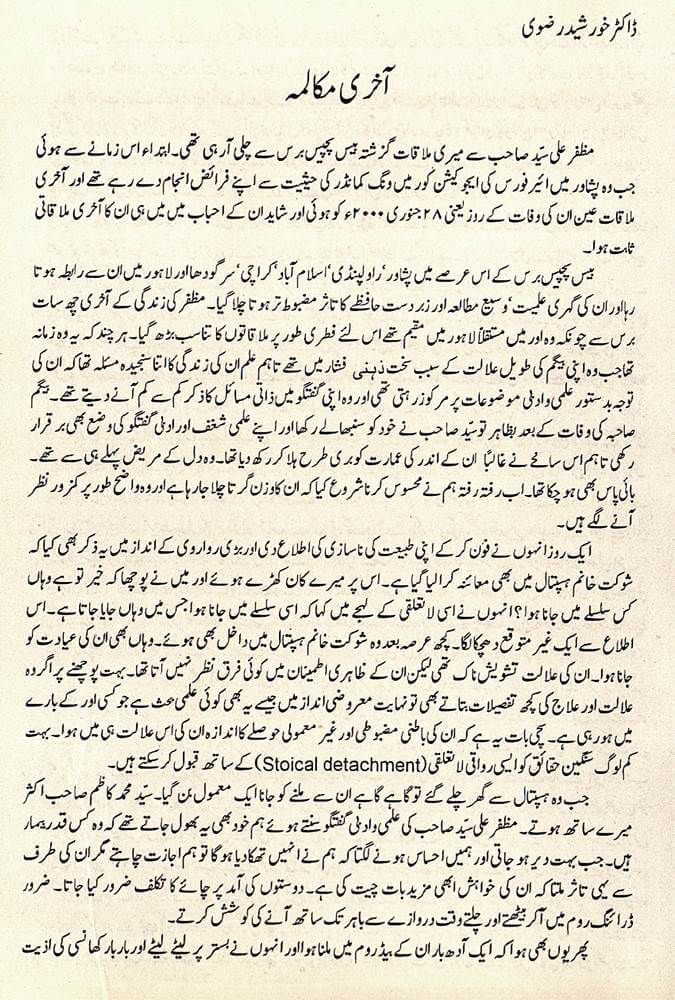 ڈاکٹر خورشید رضوی
آخری مکالمہ
مظفر علی سیّد صاحب سے میری ملاقات گزشتہ بیس پچیس برس سے چلی آ رہی تھی۔ ابتداء اس زمانے سے ہوئی
جب وہ پشاور میں ائیر فورس کی ایجوکیشن کور میں ونگ کمانڈر کی حیثیت سے اپنے فرائض انجام دے رہے تھے اور آخری
ملاقات عین ان کی وفات کے روز یعنی ۲۸ جنوری ۲۰۰۰ء کو ہوئی اور شاید ان کے احباب میں میں ہی ان کا آخری ملاقاتی
ثابت ہوا۔
بیس پچیس برس کے اس عرصے میں پشاور‘ راولپنڈی‘ اسلام آباد‘ کراچی‘ سرگودھا اور لاہور میں ان سے رابطہ ہوتا
رہا اور ان کی گہری علمیت‘ وسیع مطالعہ اور زبردست حافظے کا تاثر مضبوط تر ہوتا چلا گیا۔ مظفر کی زندگی کے آخری چھ سات
برس سے چونکہ وہ اور میں مستقلاً لاہور میں مقیم تھے اس لئے فطری طور پر ملاقاتوں کا تناسب بڑھ گیا۔ ہر چند کہ یہ وہ زمانہ
تھا جب وہ اپنی بیگم کی طویل علالت کے سبب سخت ذہنی فشار میں تھے تاہم علم ان کی زندگی کا اتنا سنجیدہ مسئلہ تھا کہ ان کی
توجہ بدستور علمی و ادبی موضوعات پر مرکوز رہتی تھی اور وہ اپنی گفتگو میں ذاتی مسائل کا ذکر کم سے کم آنے دیتے تھے۔ بیگم
صاحبہ کی وفات کے بعد بظاہر تو سیّد صاحب نے خود کو سنبھالے رکھا اور اپنے علمی شغف اور ادبی گفتگو کی وضع بھی بر قرار
رکھی تاہم اس سانحے نے غالباً ان کے اندر کی عمارت کو بری طرح ہلا کر رکھ دیا تھا۔ وہ دل کے مریض پہلے ہی سے تھے۔
بائی پاس بھی ہو چکا تھا۔ اب رفتہ رفتہ ہم نے محسوس کرنا شروع کیا کہ ان کا وزن گرتا چلا جا رہا ہے اور وہ واضح طور پر کمزور نظر
آنے لگے ہیں۔
ایک روز انہوں نے فون کر کے اپنی طبیعت کی ناسازی کی اطلاع دی اور بڑی رواروی کے انداز میں یہ ذکر بھی کیا کہ
شوکت خانم ہسپتال میں بھی معائنہ کرا لیا گیا ہے۔ اس پر میرے کان کھڑے ہوئے اور میں نے پوچھا کہ خیر تو ہے وہاں
کس سلسلے میں جانا ہوا؟ انہوں نے اسی لا تعلقی کے لہجے میں کہا کہ اسی سلسلے میں جانا ہوا جس میں وہاں جایا جاتا ہے۔ اس
اطلاع سے ایک غیر متوقع دھچکا لگا۔ کچھ عرصہ بعد وہ شوکت خانم ہسپتال میں داخل بھی ہوئے۔ وہاں بھی ان کی عیادت کو
جانا ہوا۔ ان کی علالت تشویش ناک تھی لیکن ان کے ظاہری اطمینان میں کوئی فرق نظر نہیں آتا تھا۔ بہت پوچھنے پر اگر وہ
علالت اور علاج کی کچھ تفصیلات بتاتے بھی تو نہایت معروضی انداز میں جیسے یہ بھی کوئی علمی بحث ہے جو کسی اور کے بارے
میں ہو رہی ہے۔ سچی بات یہ ہے کہ ان کی باطنی مضبوطی اور غیر معمولی حوصلے کا اندازہ ان کی اس علالت ہی میں ہوا۔ بہت
کم لوگ سنگین حقائق کو ایسی رواقی لا تعلقی (Stoical detachment) کے ساتھ قبول کر سکتے ہیں۔
جب وہ ہسپتال سے گھر چلے گئے تو گاہے گاہے ان سے ملنے کو جانا ایک معمول بن گیا۔ سیّد محمد کاظم صاحب اکثر
میرے ساتھ ہوتے۔ مظفر علی سیّد صاحب کی علمی و ادبی گفتگو سنتے ہوئے ہم خود بھی یہ بھول جاتے تھے کہ وہ کس قدر بیمار
ہیں۔ جب بہت دیر ہو جاتی اور ہمیں احساس ہونے لگتا کہ ہم نے انہیں تھکا دیا ہو گا تو ہم اجازت چاہتے مگر ان کی طرف
سے یہی تاثر ملتا کہ ان کی خواہش ابھی مزید بات چیت کی ہے۔ دوستوں کی آمد پر چائے کا تکلف ضرور کیا جاتا۔ ضرور
ڈرائنگ روم میں آ کر بیٹھتے اور چلتے وقت دروازے سے باہر تک ساتھ آنے کی کوشش کرتے۔
پھر یوں بھی ہوا کہ ایک آدھ بار ان کے بیڈ روم میں ملنا ہوا اور انہوں نے بستر پر لیٹے لیٹے اور بار بار کھانسی کی اذیت